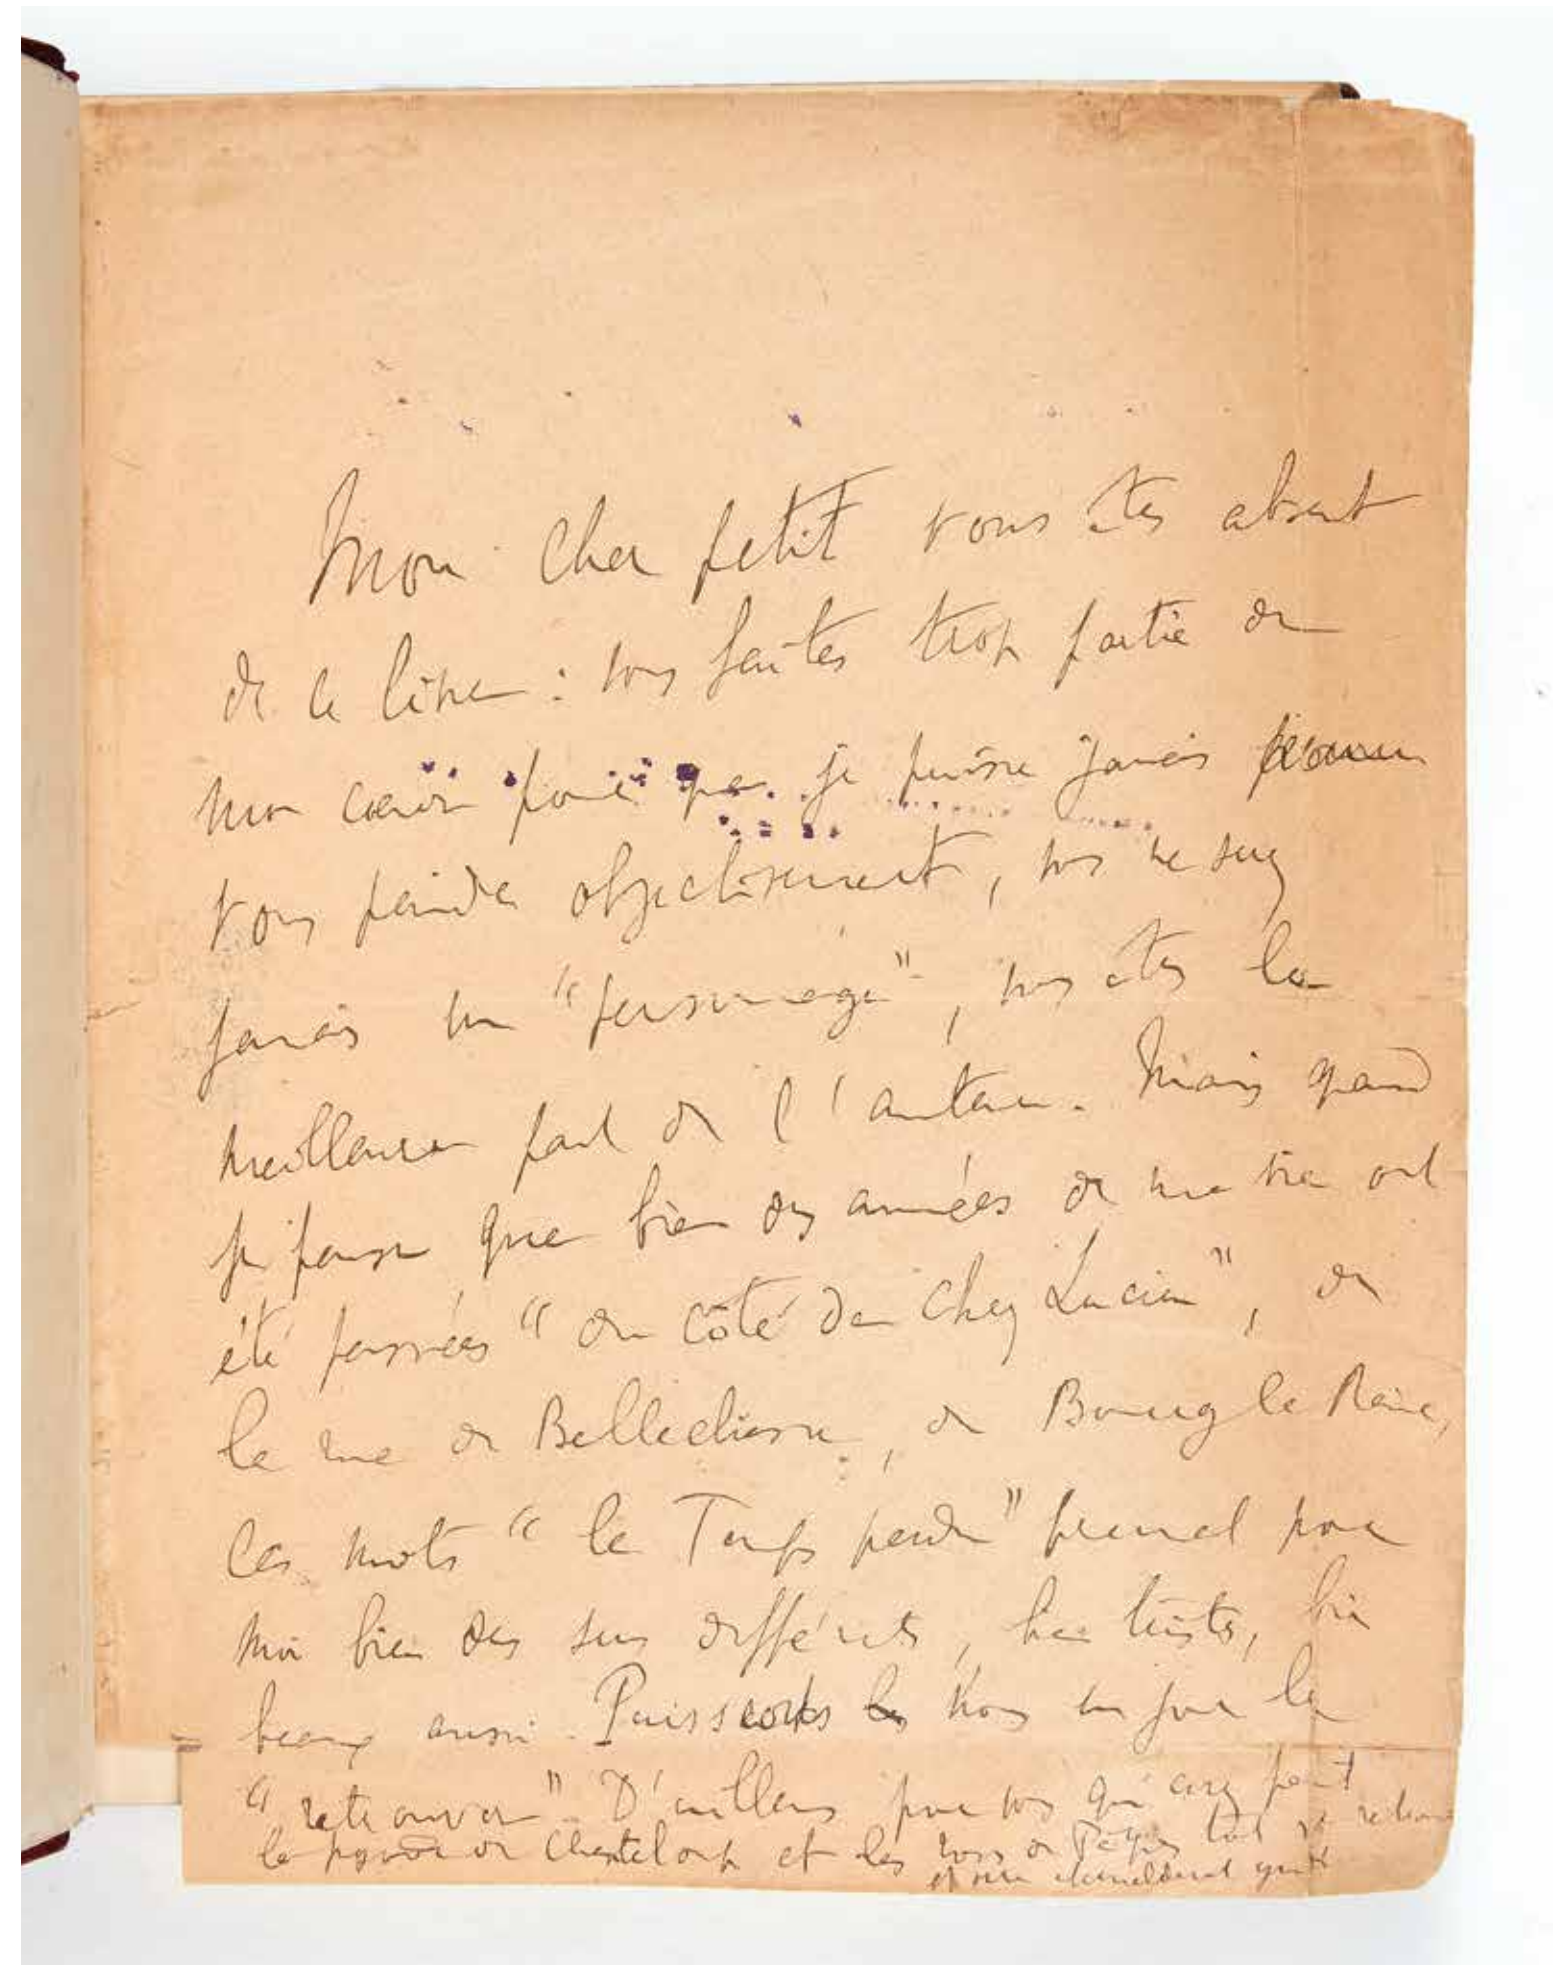 Mon cher petit vous êtes absent
de ce livre : vous faites trop partie de
mon cœur pour que je puisse jamais
vous peindre objectivement, vous ne serez
jamais un "personnage", vous êtes la
meilleure part de l'auteur. Mais quand
je pense que bien des années de ma vie ont
été passées "du côté de chez Lucien", de
la rue de Bellechasse, de Bourg la Reine,
les mots "le Temps perdu" prennent pour
moi bien des sens différents, bien tristes, bien
beaux aussi. Puissions nous un jour le
"retrouver". D'ailleurs pour vous qui avez peint
la pagode de Chanteloup et les roses de tout est retrouvé
et sera éternellement gardé